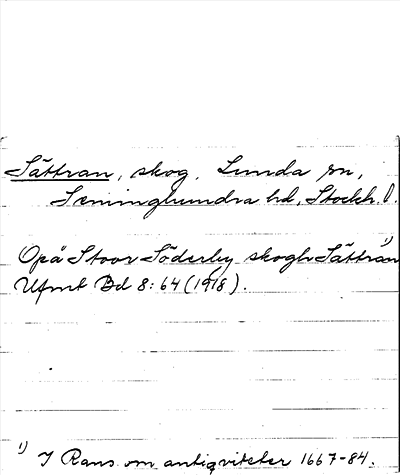 Sättran, skog. Lunda sn,
Seminghundra hd, Stockh. l.
Opå Stoor Söderby skogh Sättran 1)
Ufmt Bd 8:64 (1918).
1) I Rans. om antiqviteter 1667-84.